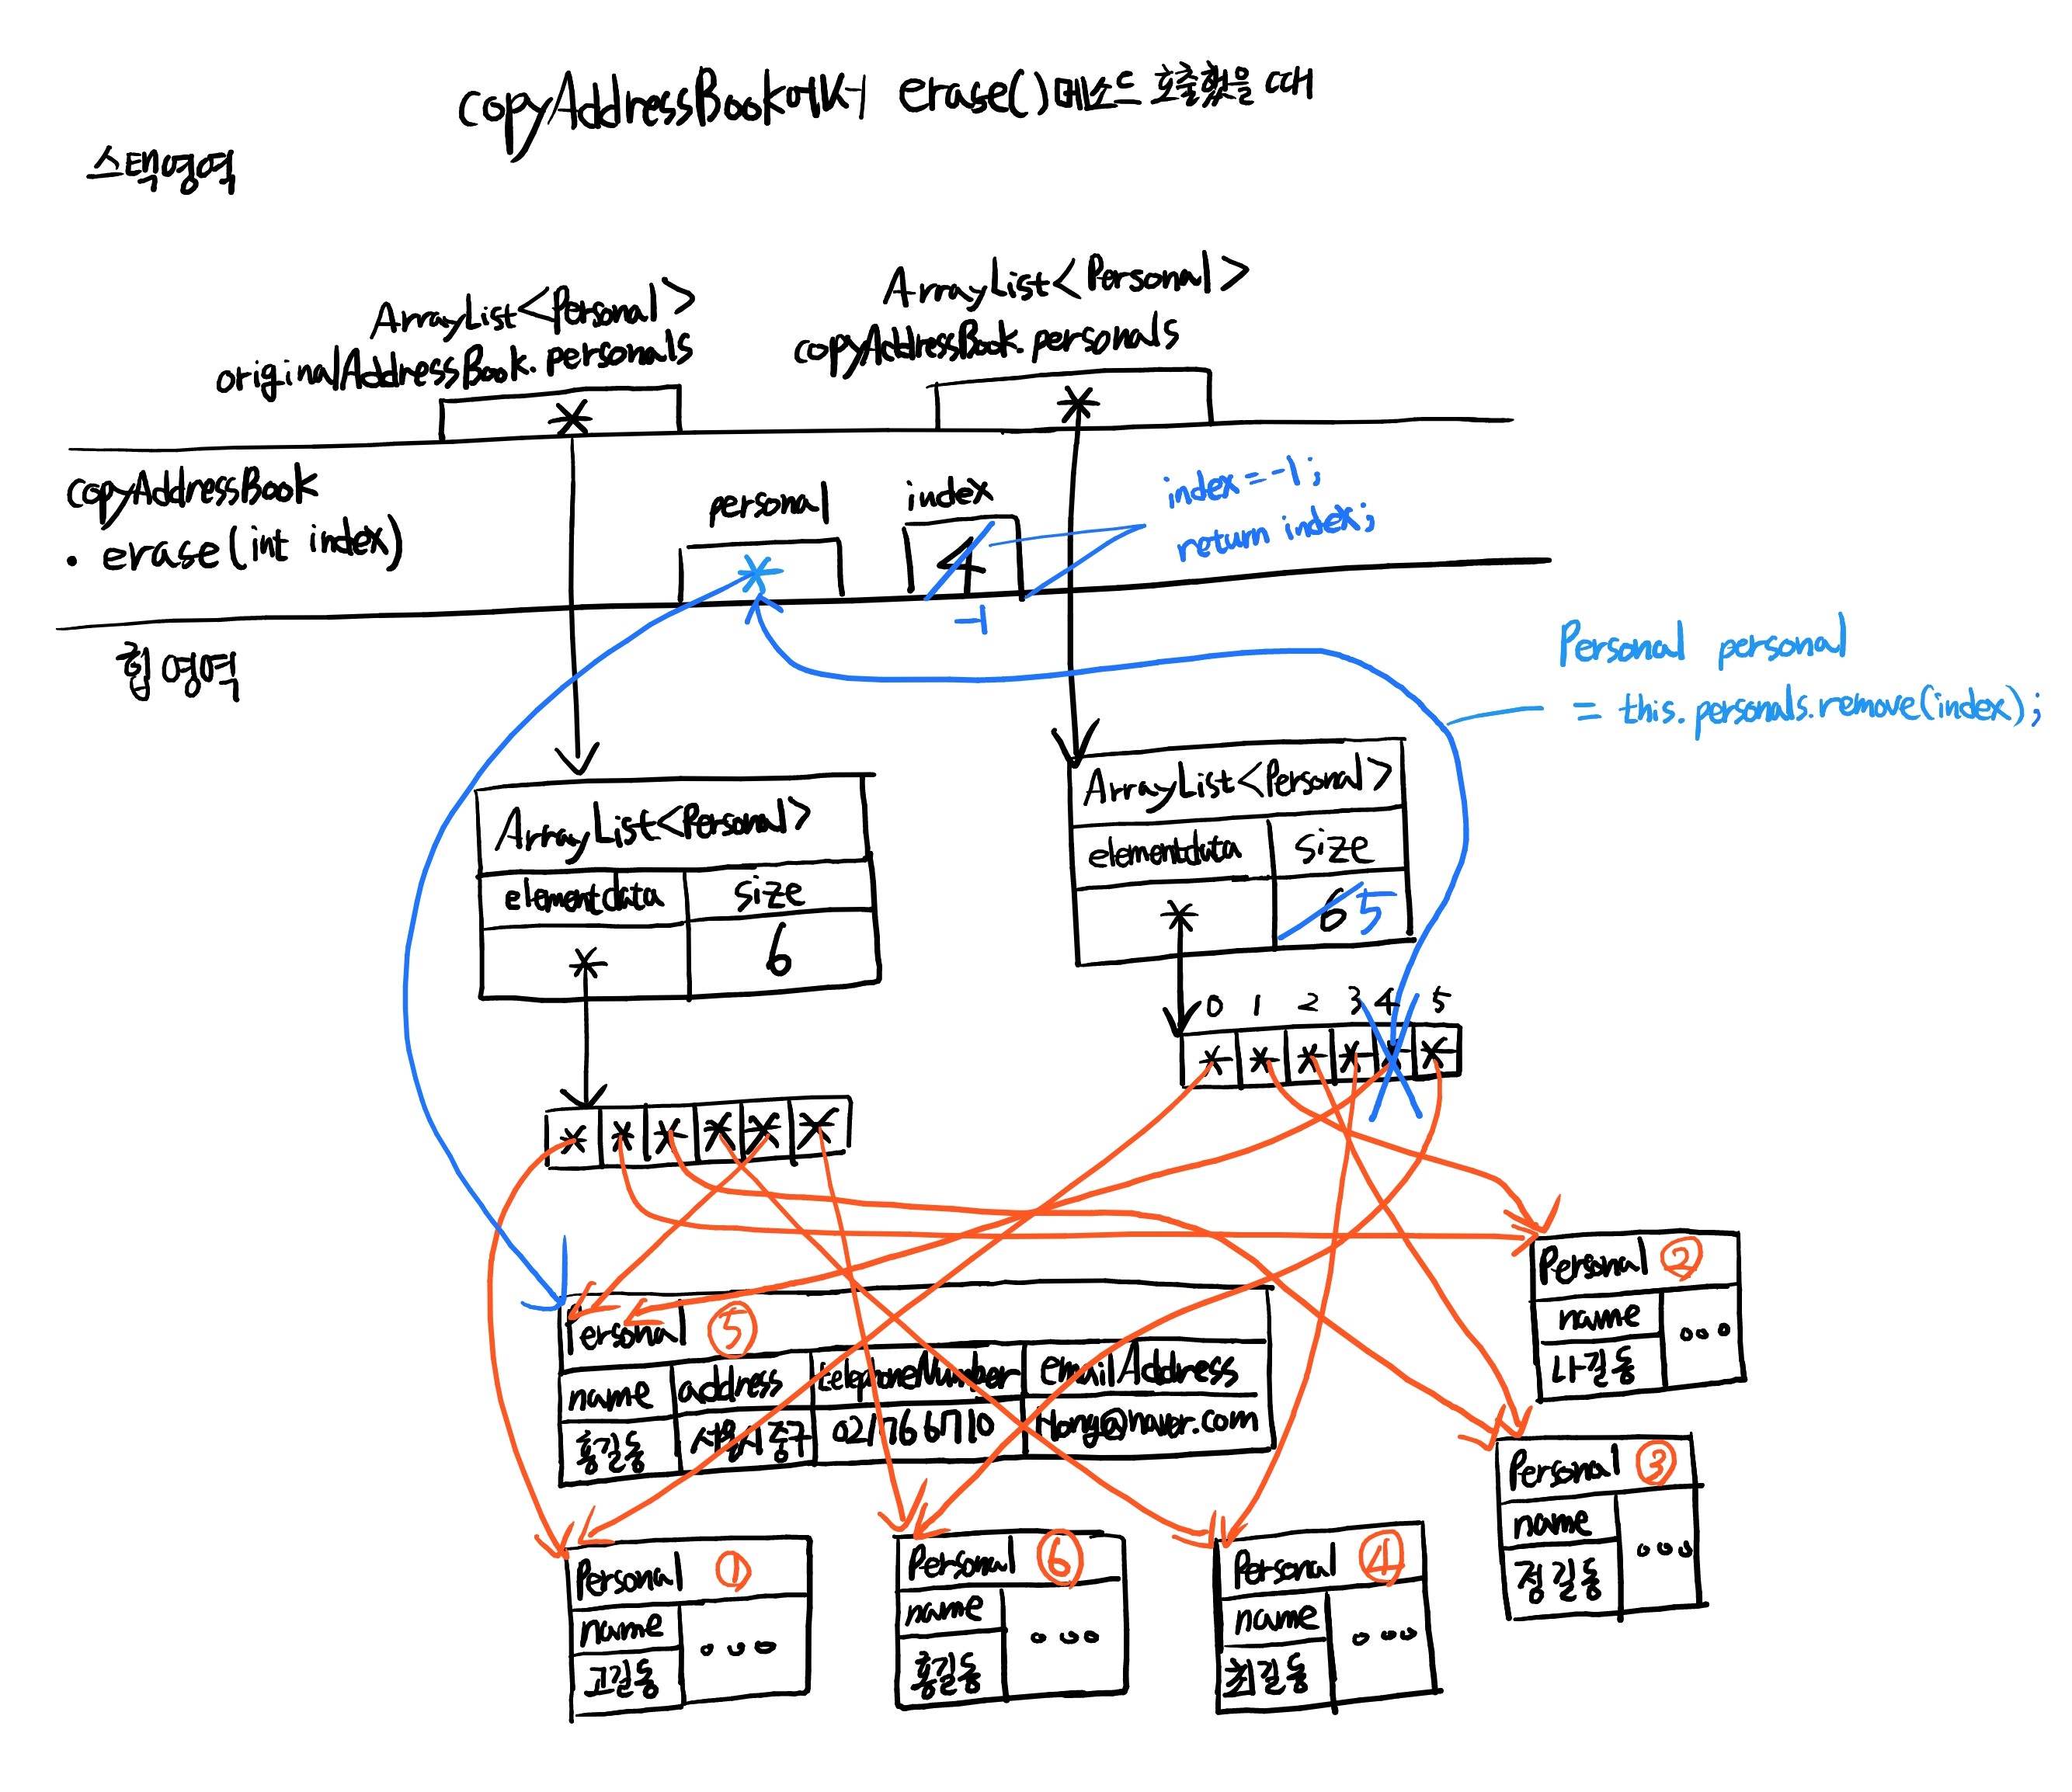 copyAddressBook에서 erase()메소드 호출했을 때
스택영역
ArrayList<Personal>
originalAddressBook.personals
*
ArrayList<Personal>
copyAddressBook.personals
*
copyAddressBook
. erase(int index)
personal
*
index
4
-1
index=-1;
return index;
힙 영역
Personal personal
= this.personals.remove(index);
ArrayList<Personal>
elementdata size
* 6
ArrayList<Personal>
elementdata size
* 6 5
0 1 2 3 4 5
* * * * * *
* * * * * *
Personal ②
name
나길동
Personal ⑤
name address telephoneNumber emailAddress
홍길동 서울시 중구 027666710 Hong@naver.com
Personal ③
name
정길동
Personal ①
name
고길동
Personal ⑥
name
홍길동
Personal ④
name
최길동